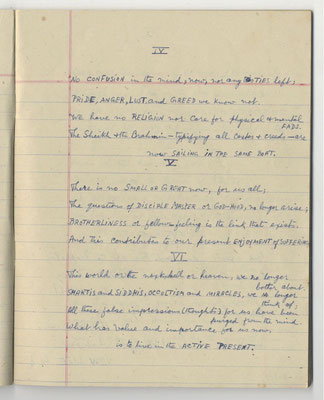 IV
No CONFUSION in the mind, now, nor any TIES left;
PRIDE, ANGER, LUST and GREED we know not.
We have no RELIGION nor Care for physical & mental
FADS.
The Sheikh & the Brahmin – typifying all castes & creeds – are
now SAILING IN THE SAME BOAT.
V
There is no SMALL or GREAT now, for us all;
The question of DISCIPLE MASTER or GOD-HOOD, no longer arise;
BROTHERLINESS or fellow-feeling is the link that exists
And this contributes to our present ENJOYMENT of SUFFERING.
VI
This world or the next hell or heaven, we no longer
bother about.
SHAKTIS and SIDDHIS, OCCULTISM and MIRACLES, we no longer
think of.
All these false impressions (thoughts) for us have been
purged from the mind
What has value and importance for us now
is to live in the ACTIVE PRESENT.